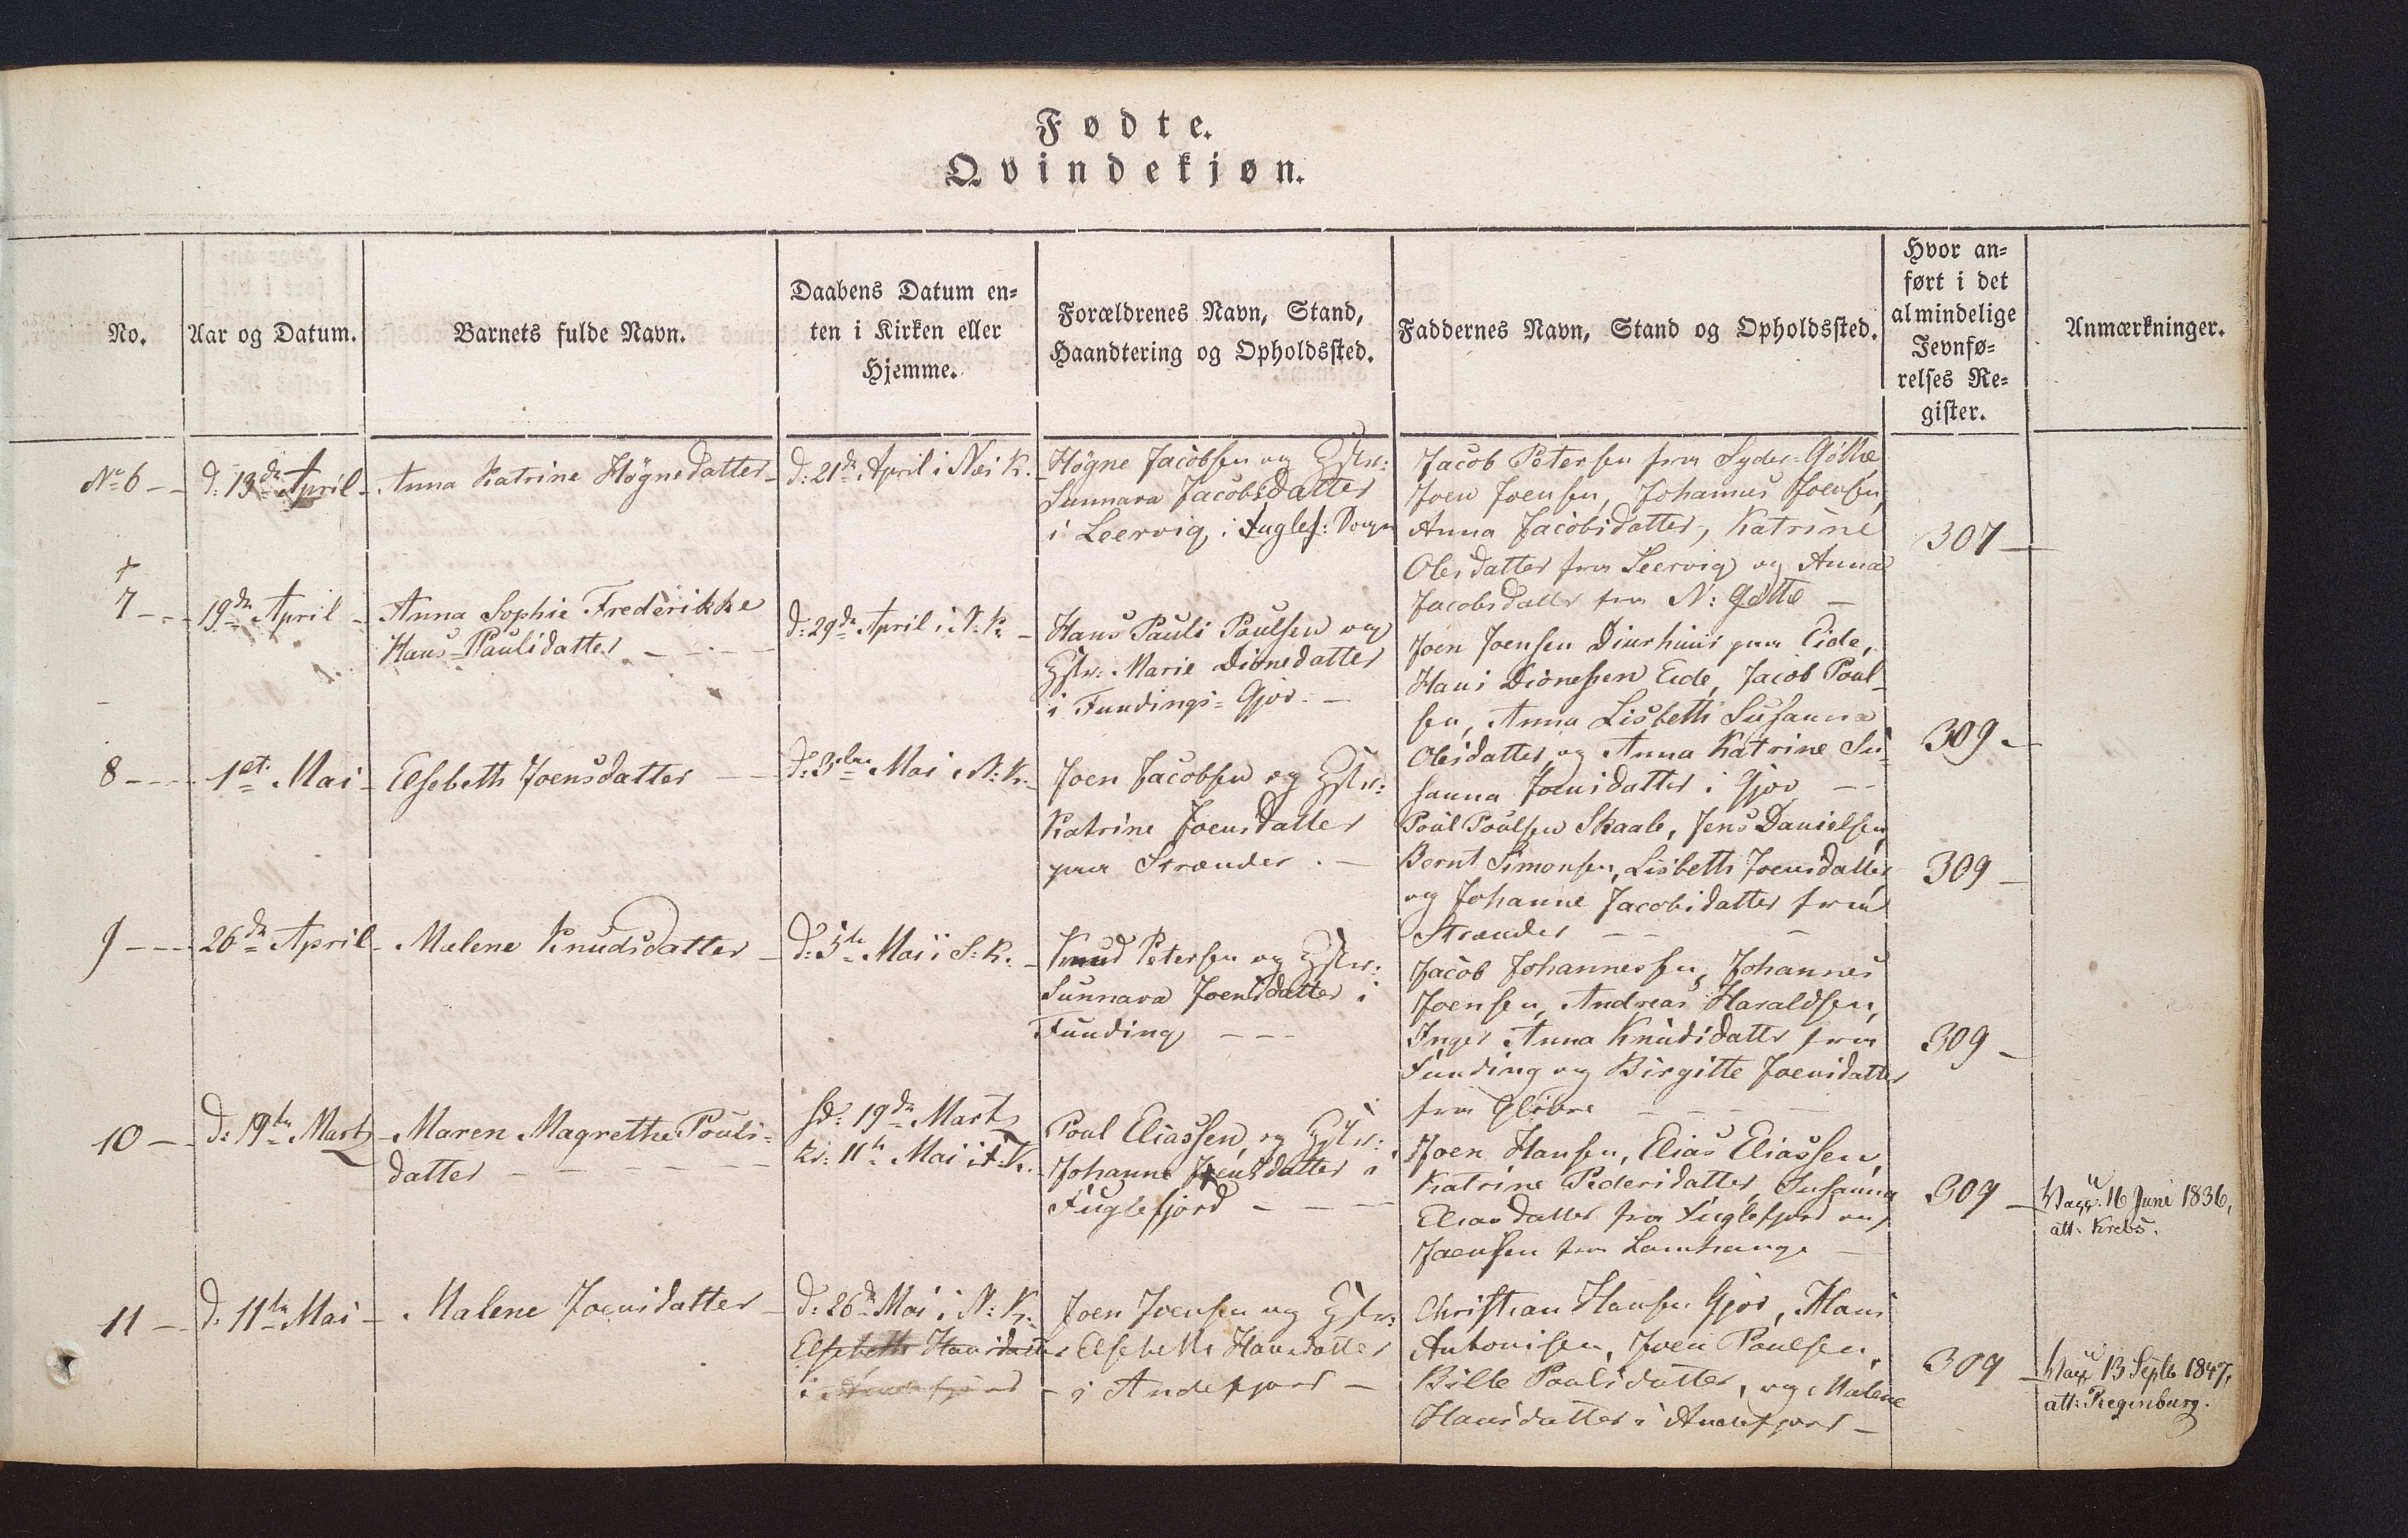 Fødte.
Qvindekjøn.
No.
Aar og Datum.
Barnets fulde Navn.
Daabens Datum en-
ten i Kirken eller
Hjemme.
Forældrenes Navn, Stand,
Haandtering og Opholdssted.
Faddernes Navn, Stand og Opholdssted.
Hvor an-
ført i det
almindelige
Jevnfø-
relses Re-
gister.
Anmærkninger.
No 6 -- d: 13de April - Anna Katrine Högnedatter - d: 21de April i Næs K.
Högne Jacobsen og Hstr:
Sunnava Jacobsdatter
i Leervig, i Fuglef: Sogn
Jacob Petersen fra Syder-Gøthe
Joen Joensen, Johannes Joensen,
Anna Jacobsdatter, Katrine
Olesdatter fra Leervig og Anna
Jacobsdatter fra N: Gøthe -
307 -
†
7 -- 19de April - Anna Sophie Frederikke
Hans-Paulsdatter
d: 29de April i N: K. -
Hans Pauli Poulsen og
Hstr: Marie Dionedatter
i Fundings-Gjov. -
Joen Joensen Diurhuus paa Eide,
Hans Dionessen Eide, Jacob Poul-
sen, Anna Lisbeth Susanna
Olesdatter og Anna Katrine Su-
sanna Joensdatter i Gjov --
309 -
8 --- 1st Mai - Elsebeth Joensdatter -- d: 3die Mai i N: K. -
Joen Jacobsen og Hstr:
Katrine Joensdatter
paa Strænder. -
Poul Poulsen Skaale, Jens Danielsen,
Bernt Simonsen, Lisbeth Joensdatter
og Johanne Jacobsdatter fra
Strænder -- -
309 -
9 --- 26de April - Malene Knudsdatter - d: 5te Mai i S: K. -
Knud Petersen og Hstr:
Sunnava Joensdatter i
Funding ---
Jacob Johannessen, Johannes
Joensen, Andreas Haraldsen,
Inger Anna Knudsdatter fra
Funding og Birgitte Joensdatter
fra
309 -
10 -- d: 19de Marts - Maren Magrethe Pouls-
datter ------
hd: 19de Marts
Ki: 11te Mai i F. K.
Poul Eliassen og Hstr:
Johanne Joensdatter i
Fuglefjord ---
Joen Hansen, Elias Eliassen,
Katrine Pedersdatter, Susanna
Eliasdatter fra Fuglefjord og
Joensen fra Lamhauge -
309 -
Vacc: 16 Juni 1836,
att: Krebs.
11 -- d. 11te Mai - Malene Joensdatter - d: 26de Mai i N: K:
Elsebeth Hansdatter
i Andefjord
Joen Joensen og Hstr:
Elsebeth Hansdatter
i Andefjord -
Christian Hansen Gjov, Hans
Antonisen, Joen Poulsen,
Bille Poulsdatter, og Malene
Hansdatter i Andefjord -
309 -
Vacc: 13 Septb 1847,
att: Regenburg.